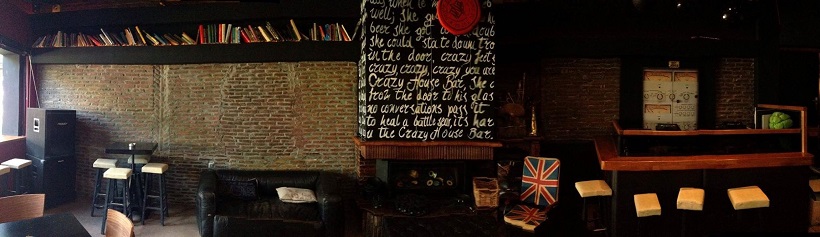 was when le
well, she gu
beer she got could
she could state down tro
in the door, crazy feet s
crazy, crazy, crazy you are
Crazy House Bar. She c
from the door to his glas
no conversations pass it
to heal a battle it's har
the Crazy House Bar.